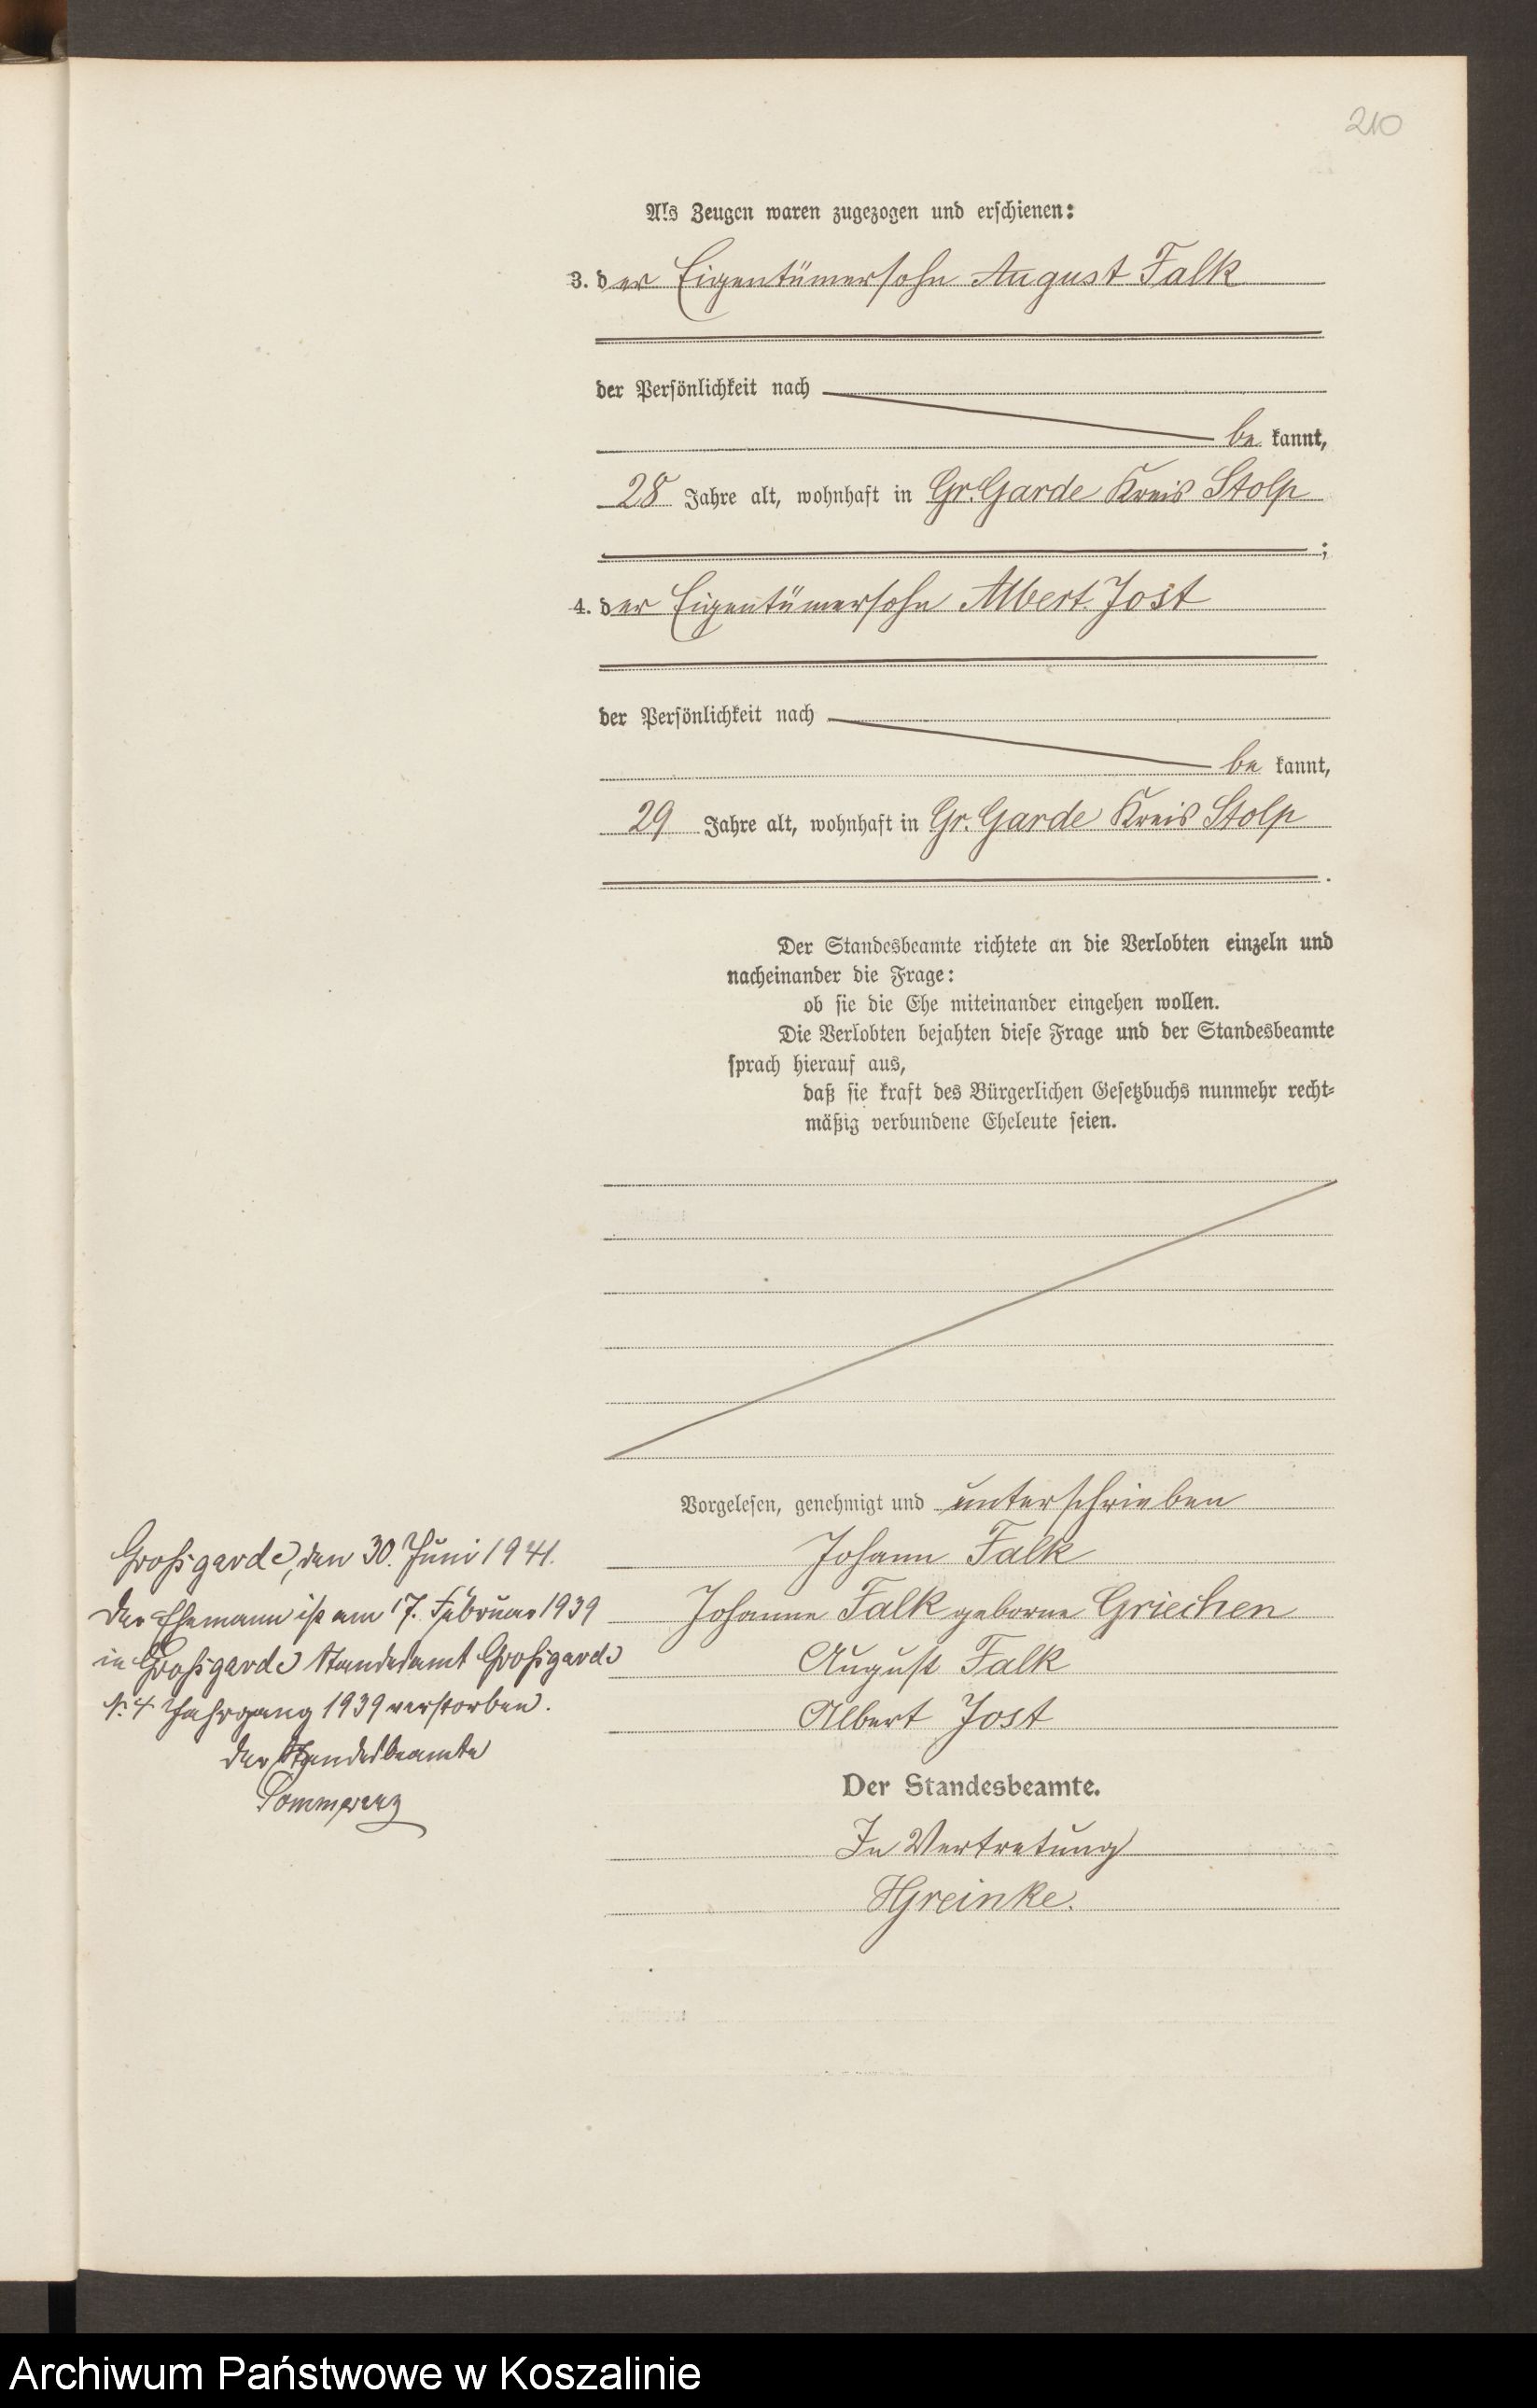 210
Als Zeugen waren zugezogen und erschienen:
3. der Eigentümersohn August Falk
der Persönlichkeit nach
be kannt,
28 Jahre alt, wohnhaft in Gr. Garde Kreis Stolp
;
4. der Eigentümersohn Albert Jost
der Persönlichkeit nach
be kannt,
29 Jahre alt, wohnhaft in Gr. Garde Kreis Stolp
.
Der Standesbeamte richtete an die Verlobten einzeln und
nacheinander die Frage:
ob sie die Ehe miteinander eingehen wollen.
Die Verlobten bejahten diese Frage und der Standesbeamte
sprach hierauf aus,
daß sie kraft des Bürgerlichen Gesetzbuchs nunmehr recht-
mäßig verbundene Eheleute seien.
Vorgelesen, genehmigt und unterschrieben
Johann Falk
Johanne Falk geborne Griechen
August Falk
Albert Jost
Der Standesbeamte.
In Vertretung
HGreinke.
Großgarde, den 30. Juni 1941.
Der Ehemann ist am 17. Februar 1939
in Großgarde Standesamt Großgarde
Nr. 4 Jahrgang 1939 verstorben.
Der Standesbeamte
Pommerenz
Archiwum Państwowe w Koszalinie